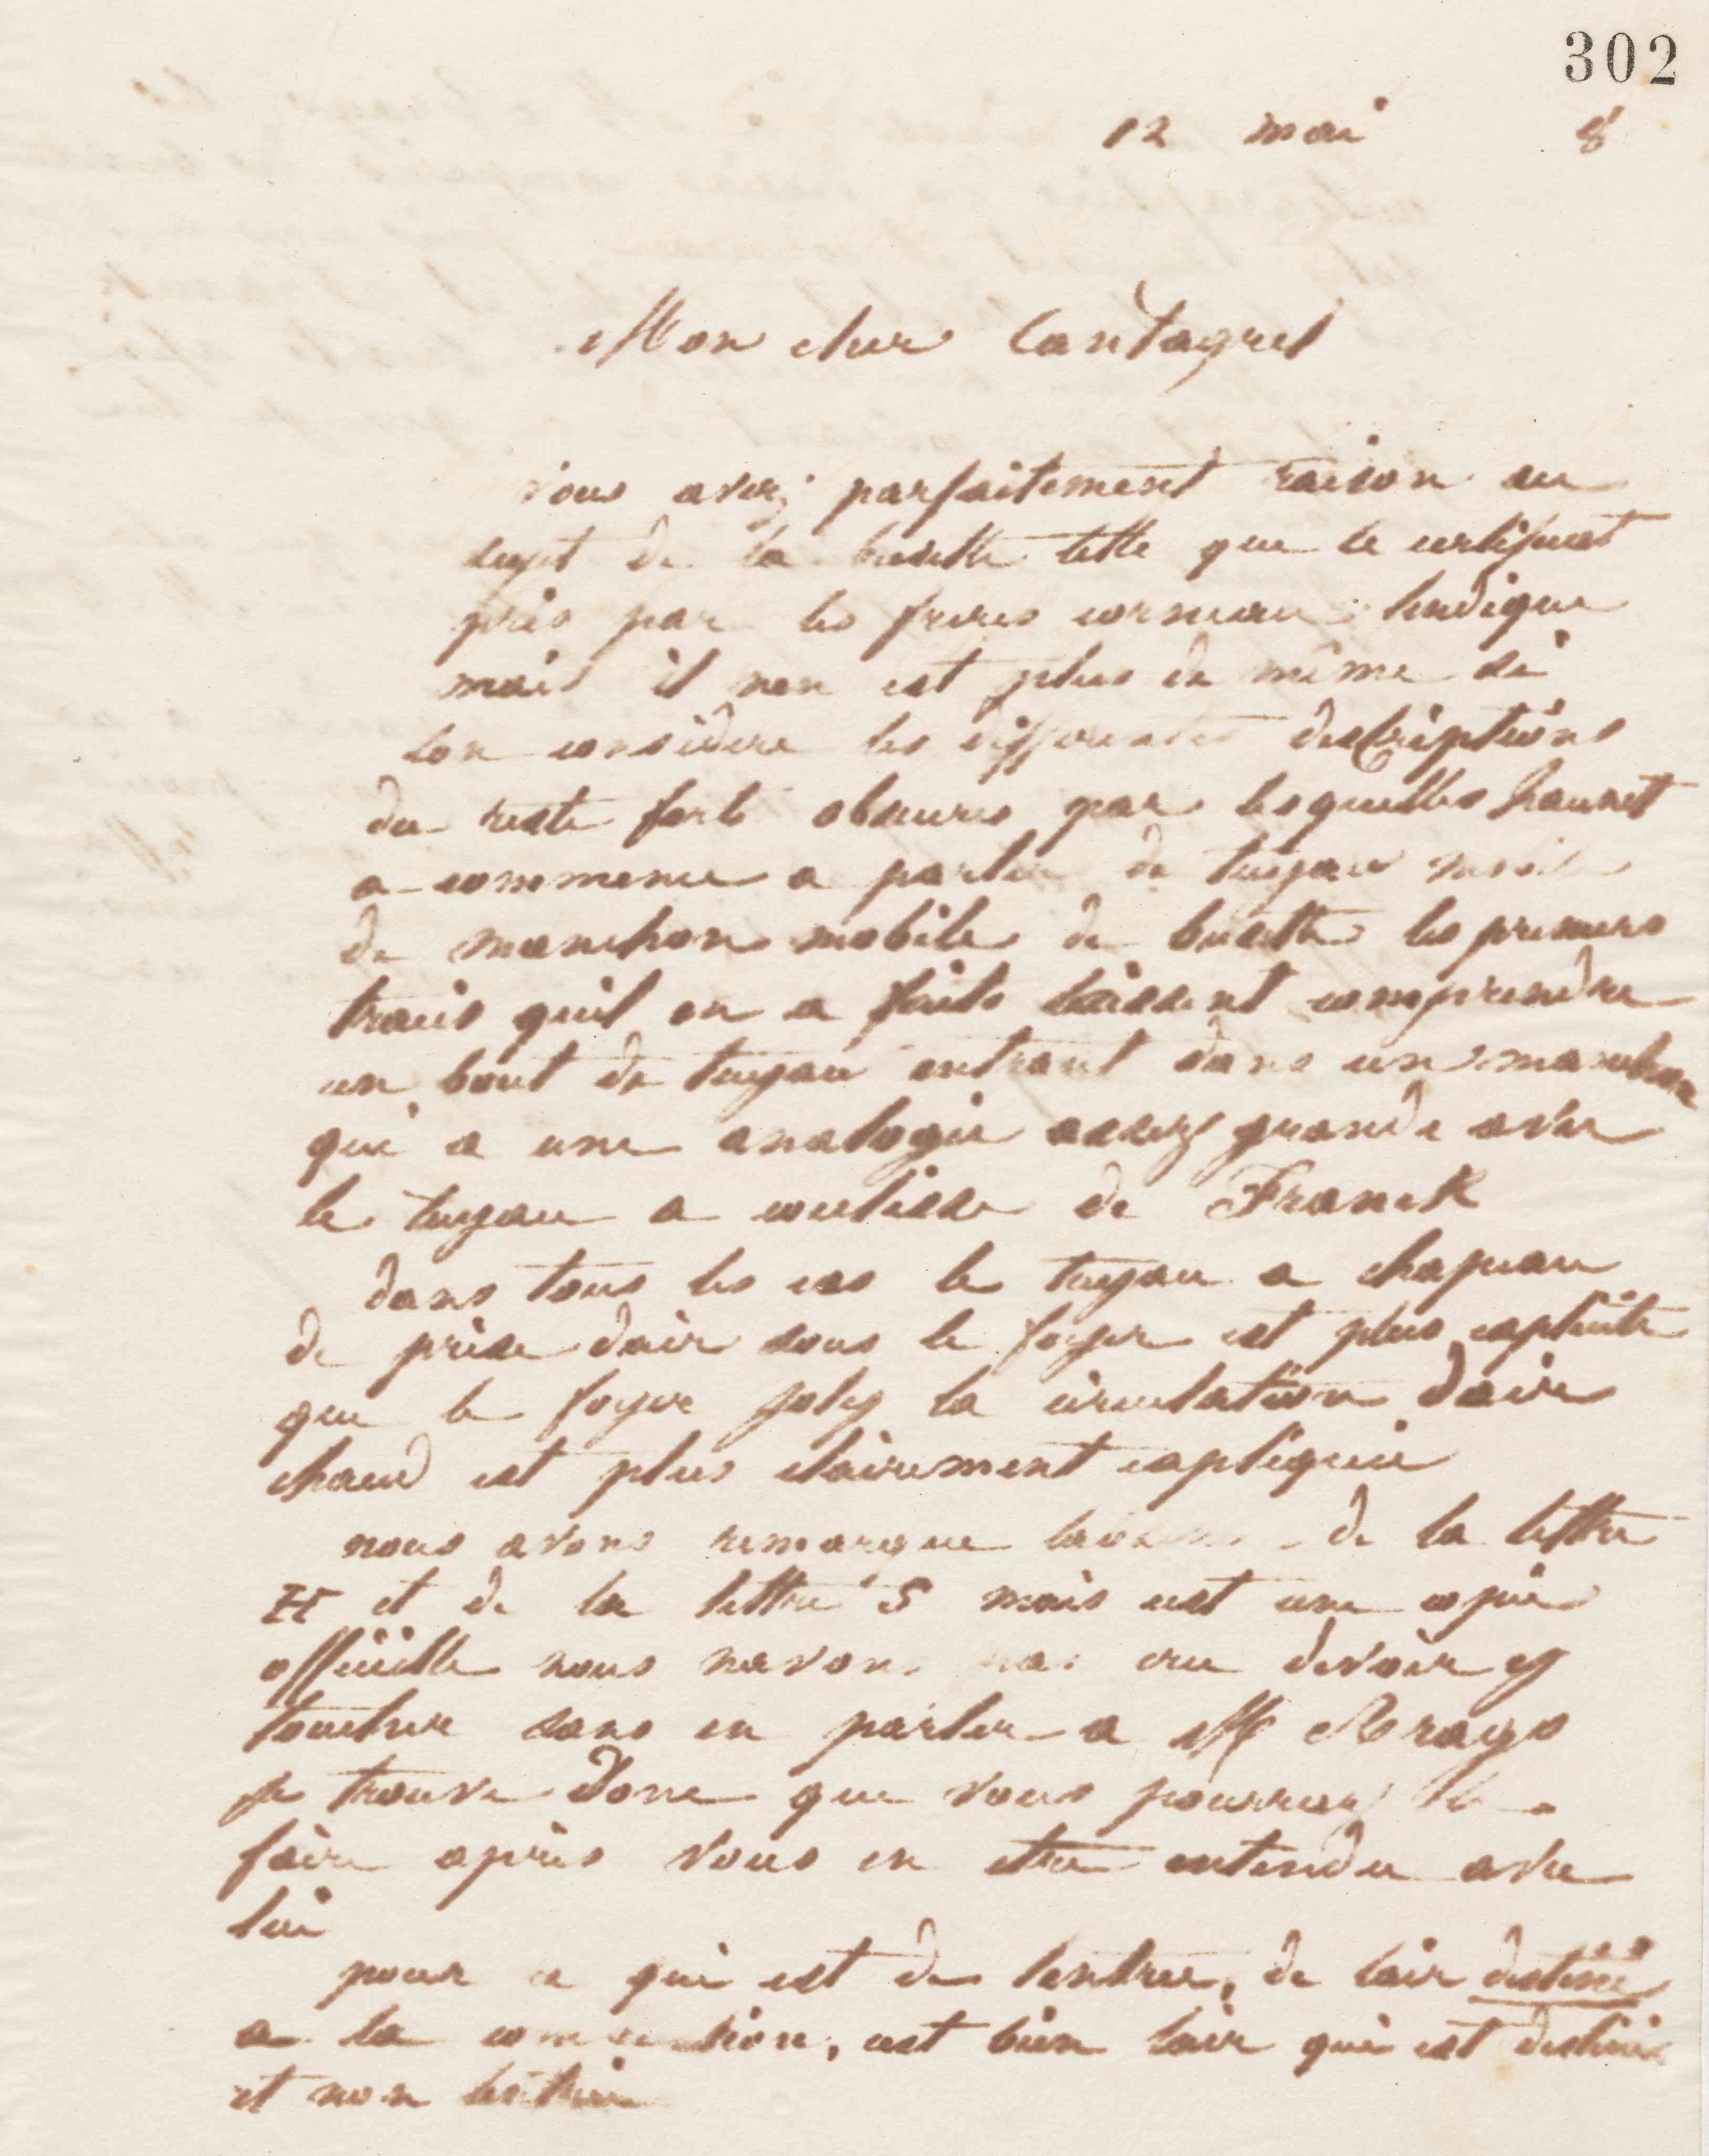 302
12 mai 8
Mon cher Cantagrel
vous avez parfaitement raison au
sujet de la buselle telle que le certificat
pris par les freres corneau lindique
mais il nen est plus de même si
lon considere les differentes descriptions
du reste fort obscures par lesquelles hauret
a commence a parler de tuyau
de manchon mobile de buselle les premiers
trais quil en a faits laissent comprendre
un bout de tuyau entrant dans un manchon
qui a une analogie assez grande avec
le tuyau a coulisse de Franck
dans tous les cas le tuyau a chapeau
de prise dair sous le foyer est plus explicite
que le foyer Joly la circulation dair
chaud est plus clairement expliquée
nous avons remarque labsence de la lettre
H et de la lettre S mais cest une copie
officielle nous navons pas cru devoir y
toucher sans en parler a M
je trouve donc que vous pourrez le
faire après vous en etre entendu avec
lui
pour ce qui est de lentree, de lair destiné
a la combustion, cest bien lair qui est destiné
et non lentrée